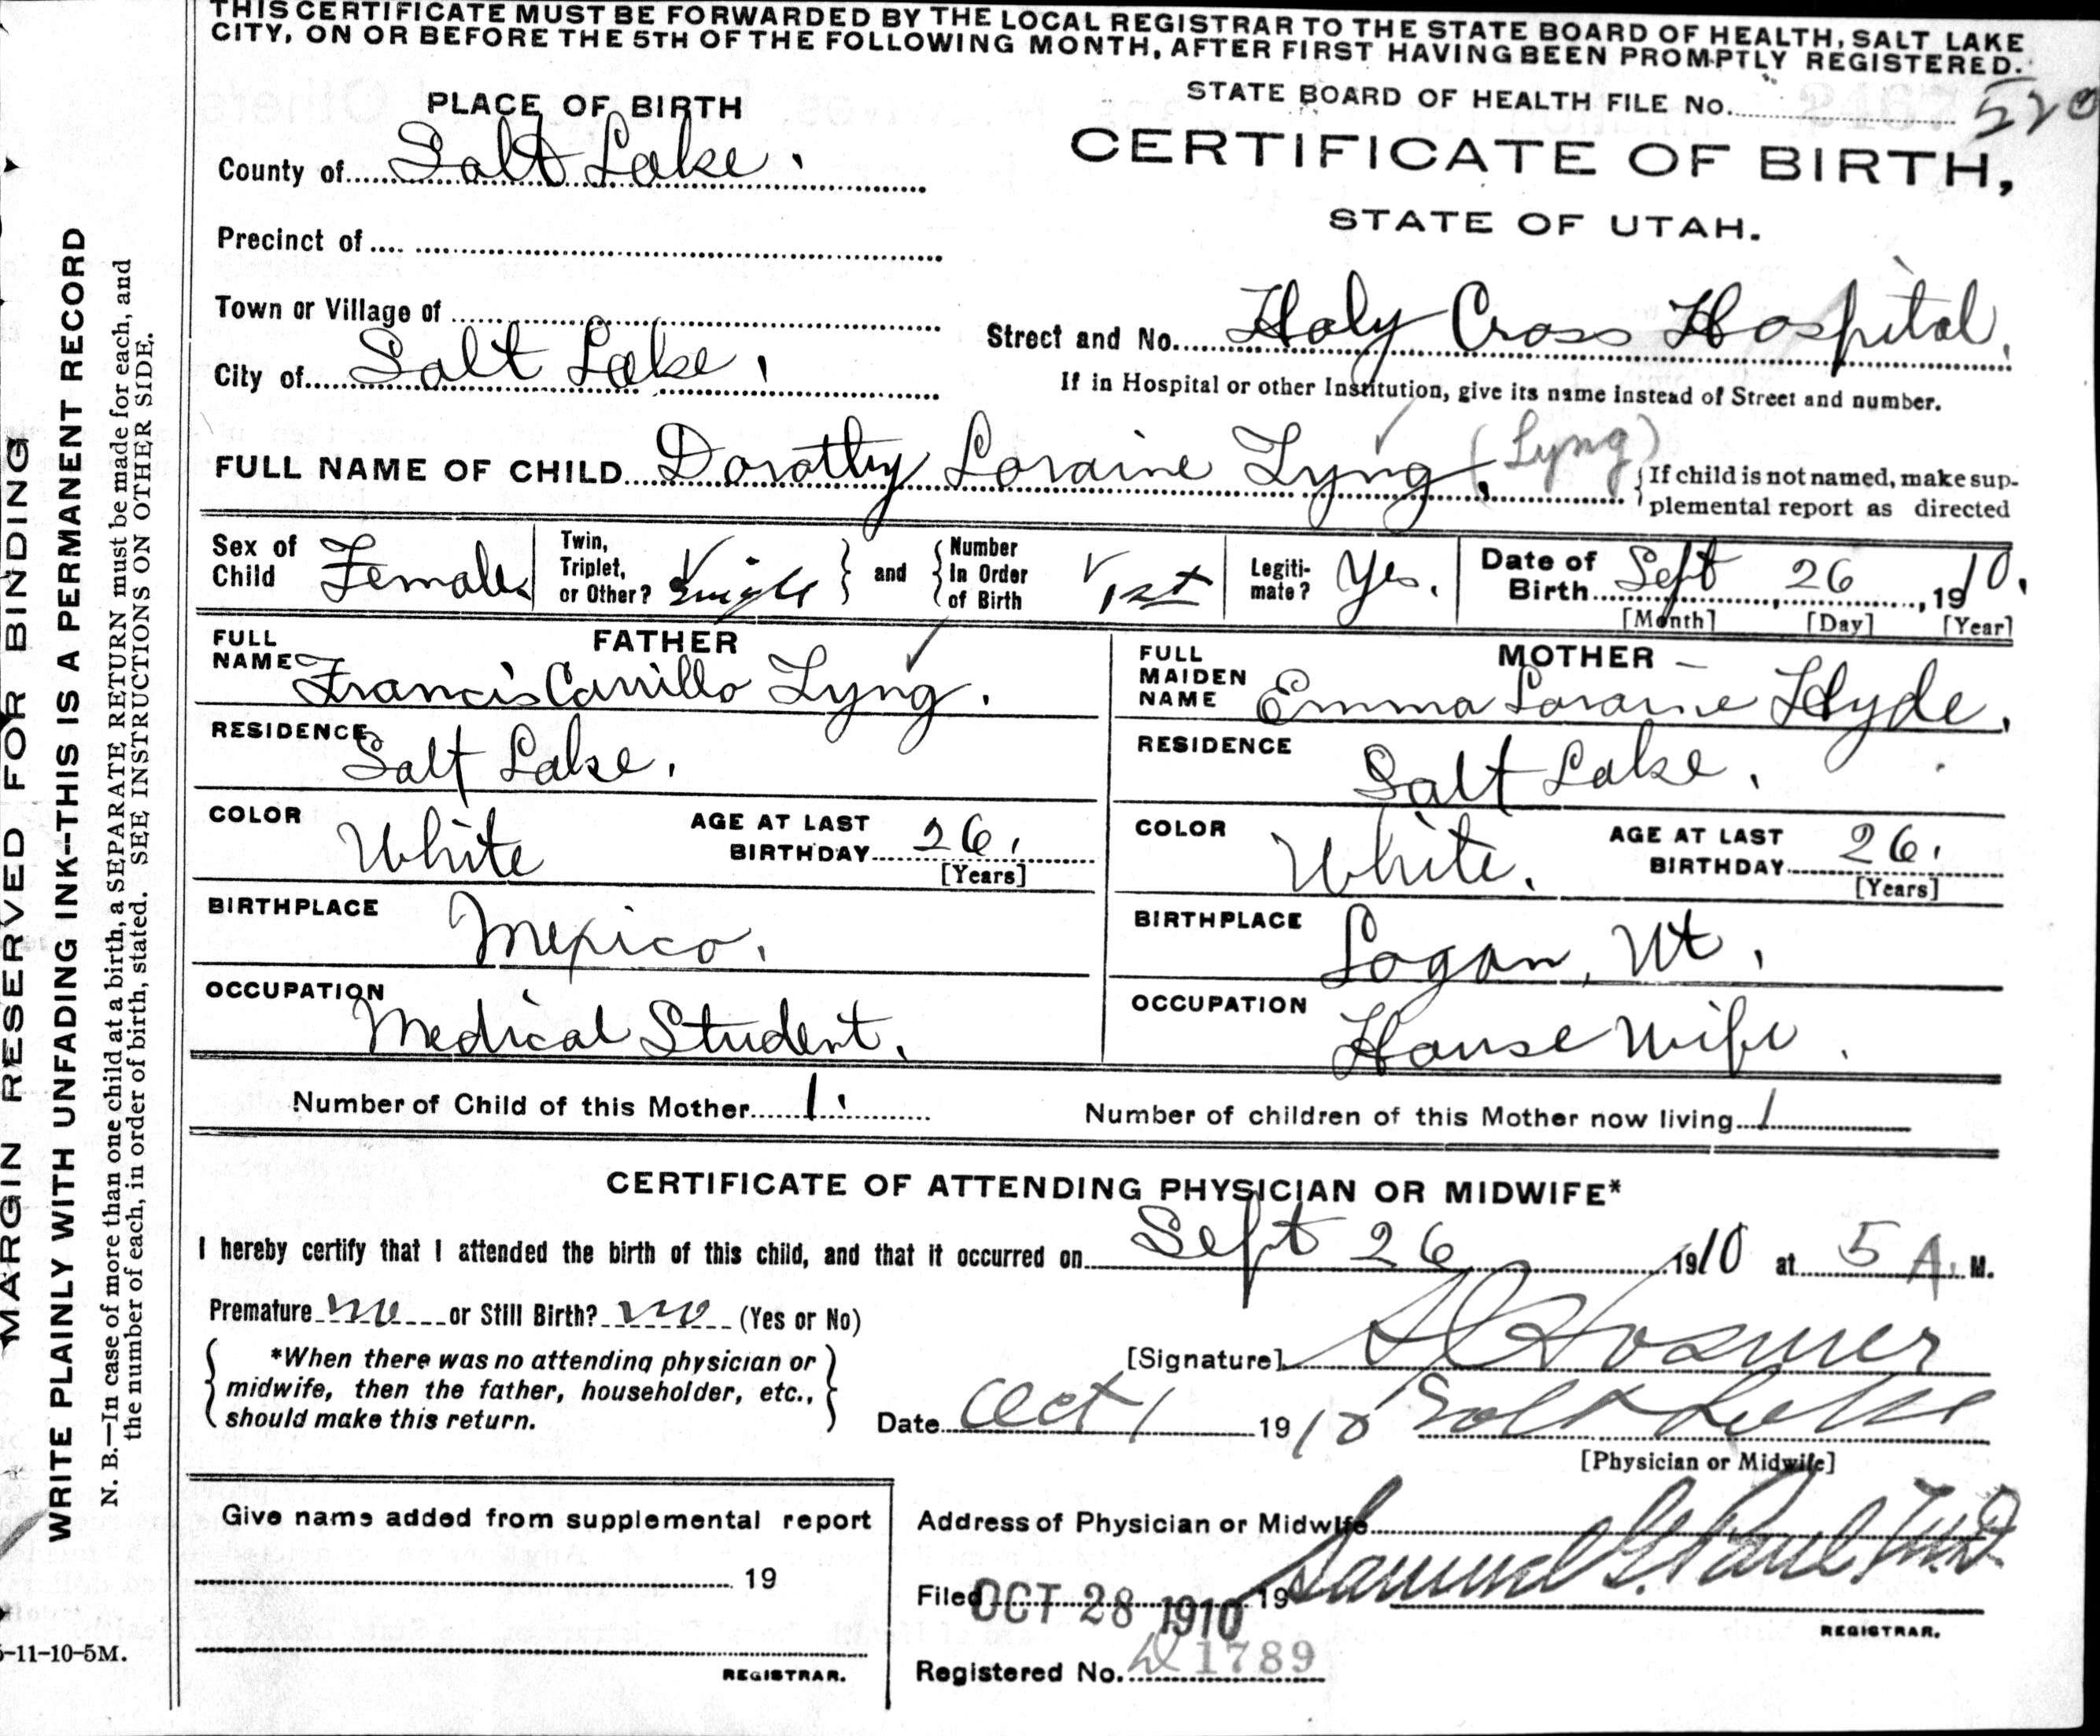 THIS CERTIFICATE MUST BE FORWARDED BY THE LOCAL REGISTRAR TO THE STATE BOARD OF HEALTH, SALT LAKE
CITY, ON OR BEFORE THE 5TH OF THE FOLLOWING MONTH, AFTER FIRST HAVING BEEN PROMPTLY REGISTERED.
MARGIN RESERVED FOR BINDING
WRITE PLAINLY WITH UNFADING INK--THIS IS A PERMANENT RECORD
N. B.—In case of more than one child at a birth, a SEPARATE RETURN must be made for each, and
the number of each, in order of birth, stated. SEE INSTRUCTIONS ON OTHER SIDE.
-11-10-5M.
PLACE OF BIRTH
County of Salt Lake.
Precinct of
Town or Village of
City of Salt Lake.
STATE BOARD OF HEALTH FILE No. 520
CERTIFICATE OF BIRTH,
STATE OF UTAH.
Street and No. Holy Cross Hospital.
If in Hospital or other Institution, give its name instead of Street and number.
FULL NAME OF CHILD Dorothy Loraine Lyng, (Lyng)
If child is not named, make sup-
plemental report as directed
Sex of Child Female
Twin, Triplet, or Other? Single
and
Number In Order of Birth 1st
Legiti-mate? Yes.
Date of Birth Sept 26, 1910.
[Month] [Day] [Year]
FATHER
FULL NAME Francis Carrillo Lyng.
RESIDENCE Salt Lake.
COLOR White
AGE AT LAST BIRTHDAY 26.
[Years]
BIRTHPLACE Mexico.
OCCUPATION Medical Student.
MOTHER
FULL MAIDEN NAME Emma Loraine Hyde.
RESIDENCE Salt Lake.
COLOR White.
AGE AT LAST BIRTHDAY 26.
[Years]
BIRTHPLACE Logan, Ut.
OCCUPATION House Wife.
Number of Child of this Mother 1.
Number of children of this Mother now living 1
CERTIFICATE OF ATTENDING PHYSICIAN OR MIDWIFE*
I hereby certify that I attended the birth of this child, and that it occurred on Sept 26 1910 at 5 A. M.
Premature no or Still Birth? no (Yes or No)
*When there was no attending physician or
midwife, then the father, householder, etc.,
should make this return.
[Signature] Hosmer
Date Oct 1 1910 Salt Lake
[Physician or Midwife]
Give name added from supplemental report
19
REGISTRAR.
Address of Physician or Midwife
Filed OCT 28 1910 19 Samuel G. Paul, M.D.
REGISTRAR.
Registered No. 1789